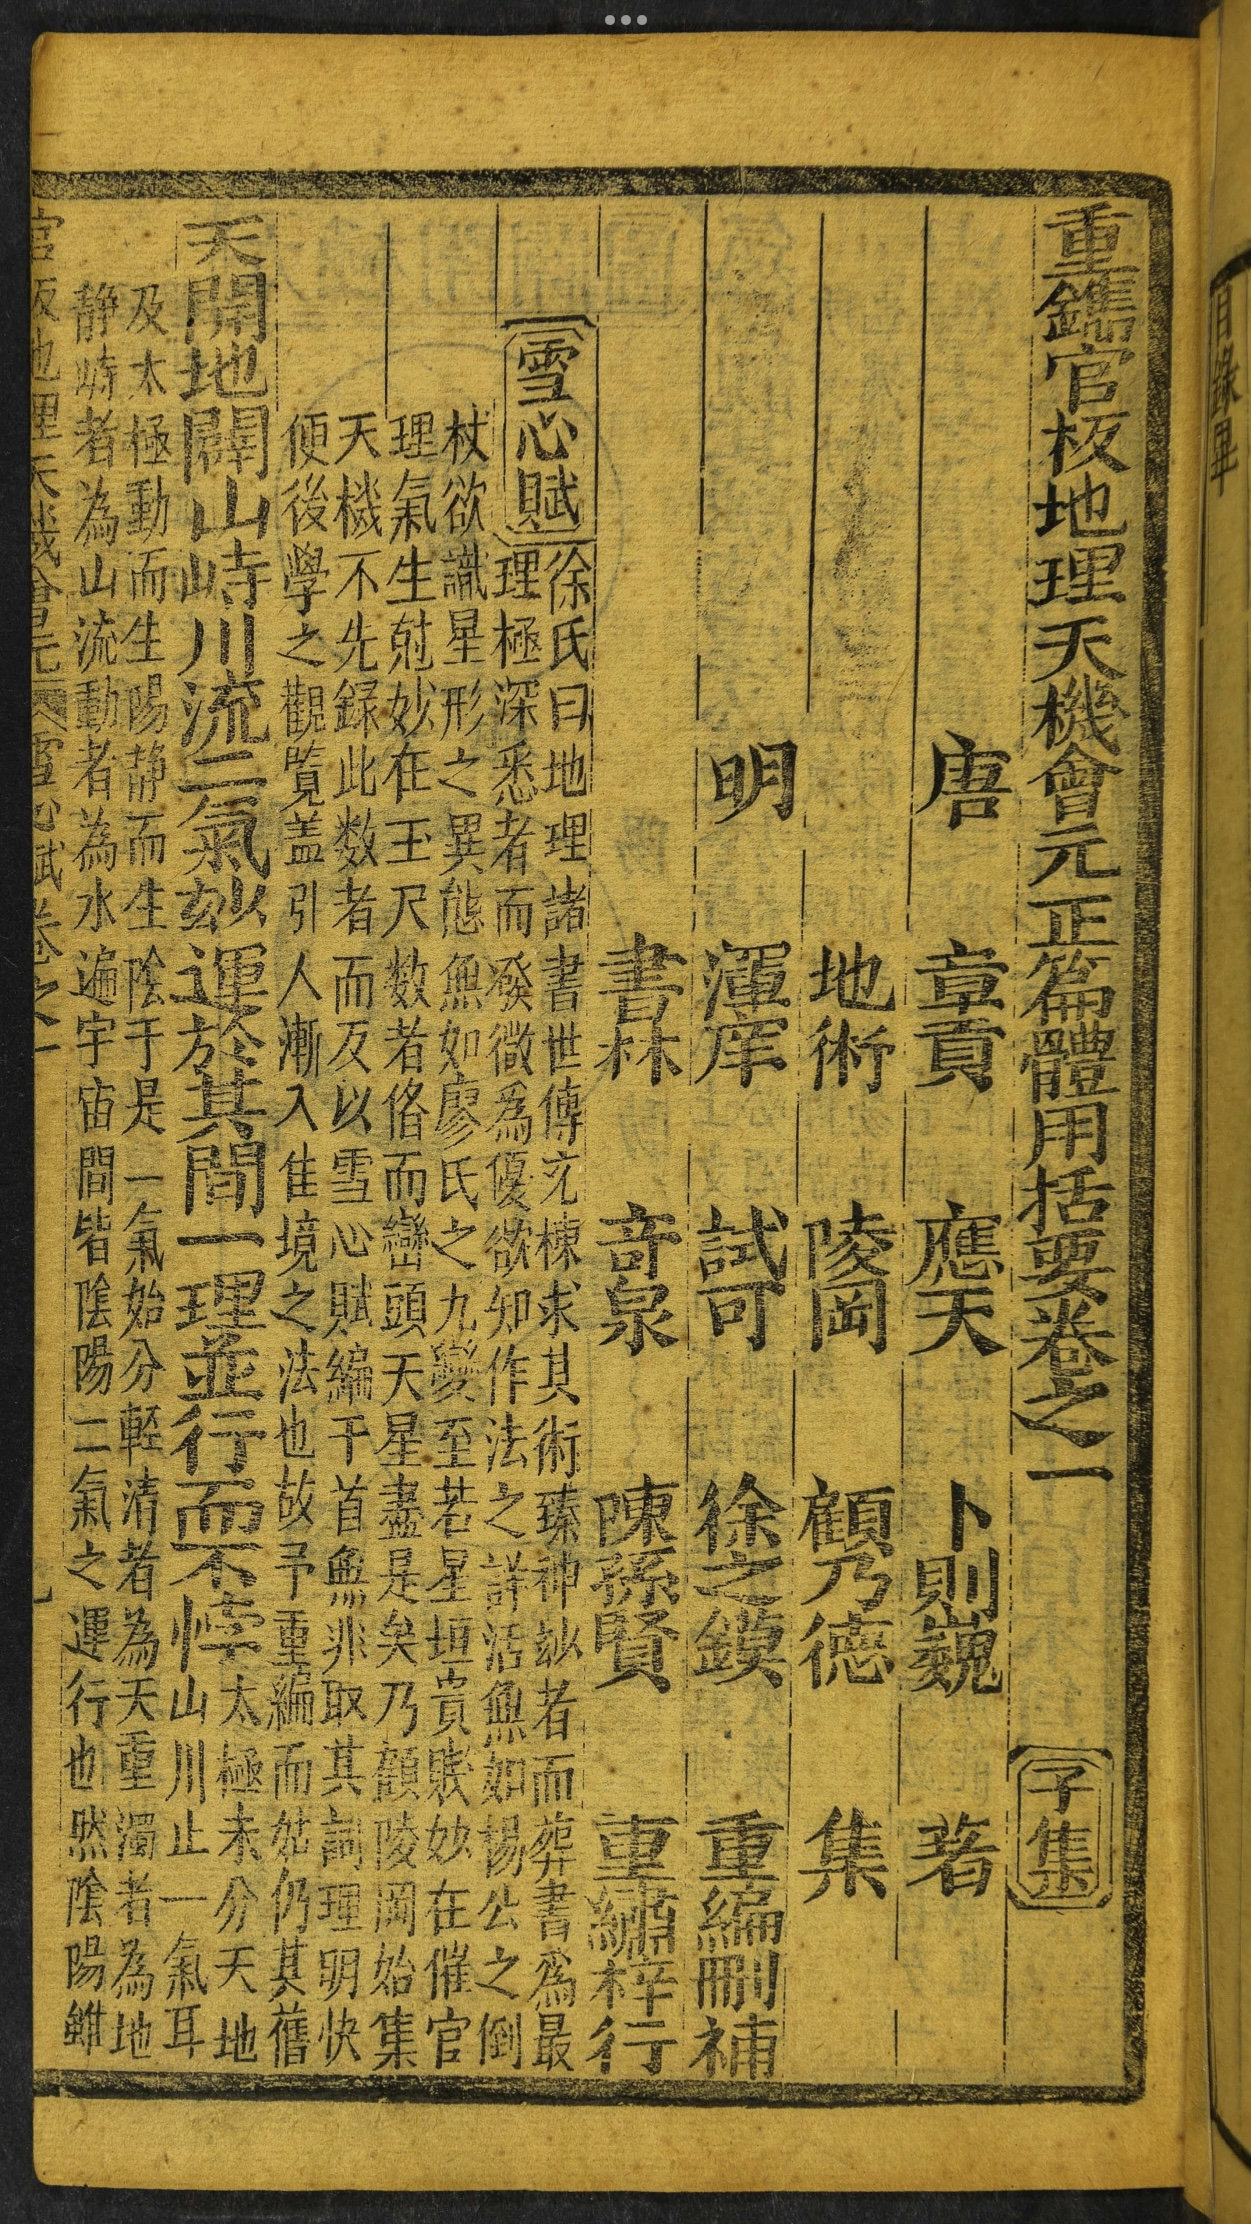 重鐫官板地理天機會元正篇體用括要卷之一 子集
唐 章貢 應天 卜則巍 著
地術 陵岡 顧乃德 集
明 渾庠 試可 徐之鏌 重編刪補
書林 竒泉 陳孫賢 重繡梓行
雪心賦
徐氏曰地理諸書世傳充棟求其術臻神玅者而葬書爲最
理極深悉者而發微爲優欲知作法之詳活無如楊公之倒
杖欲識星形之異態無如廖氏之九變至若星垣貴賤妙在催官
理氣生尅妙在玉尺数者俻而巒頭天星盡是矣乃顧陵岡始集
天機不先録此数者而反以雪心賦編于首無非取其詞理明快
便後學之觀覧盖引人漸入佳境之法也故予重編而姑仍其舊
天開地闢山峙川流二氣玅運於其間一理並行而不悖
太極未分天地
山川止一氣耳
及太極動而生陽静而生陰于是一氣始分輕清者為天重濁者為地
静峙者為山流動者為水遍宇宙間皆陰陽二氣之運行也然陰陽雖
官板地理天機會元 雪心賦卷之一
目錄畢